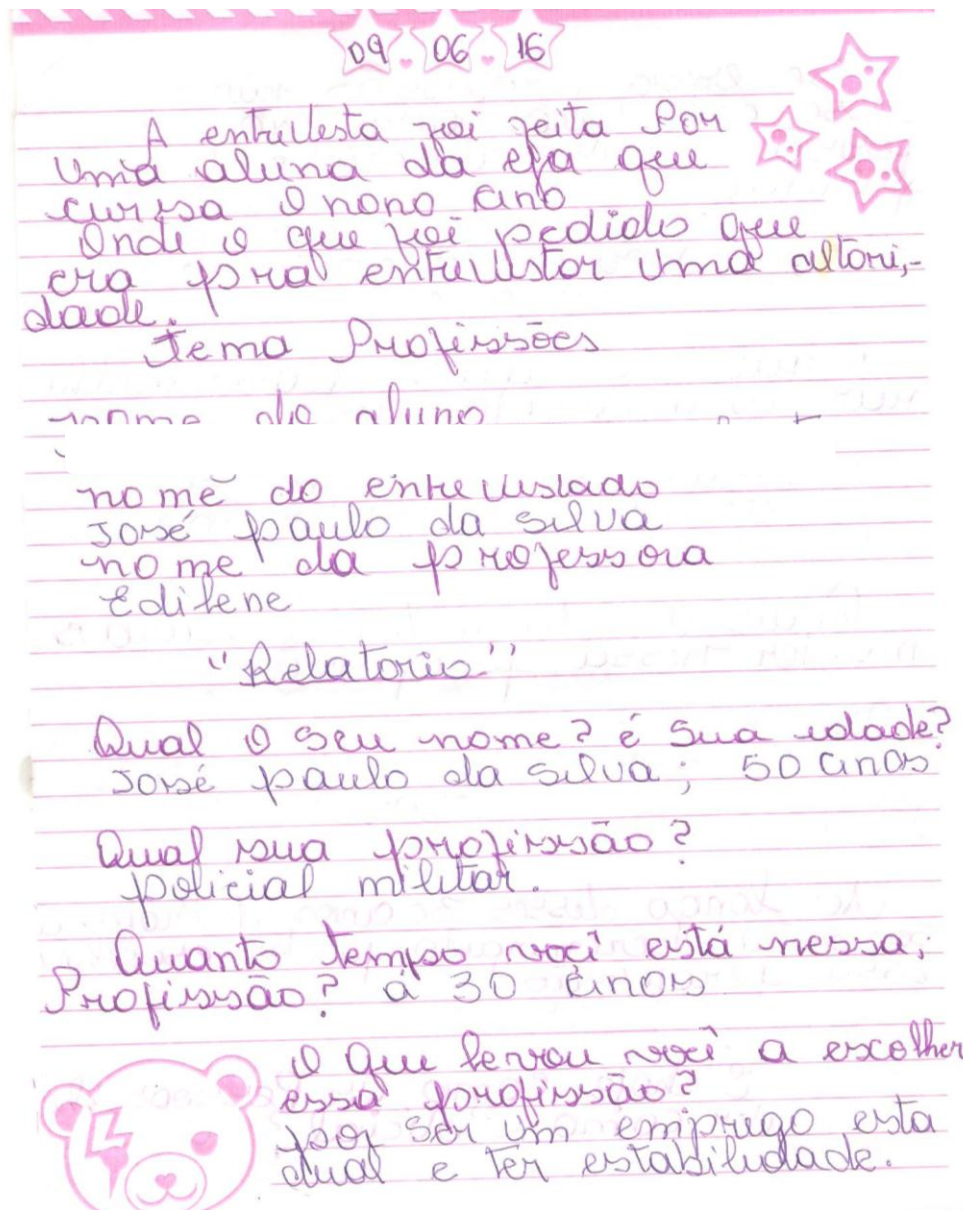 09 06 16
A entrevista foi feita Por
Uma aluna da efa que
cursa O nono ano
Onde o que foi pedido que
era pra entrevistar Uma altori,-
dade.
Tema Profissões
nome do aluno
nome do entrevistado
José paulo da Silva
nome da professora
Edilene
"Relatorio"
Qual O seu nome? é Sua idade?
José paulo da Silva; 50 anos
Qual sua profissão?
policial militar.
Quanto tempo você está nessa;
Profissão? a 30 anos
O Que levou você a escolher
essa profissão?
por ser um emprego esta
dual e ter estabilidade.